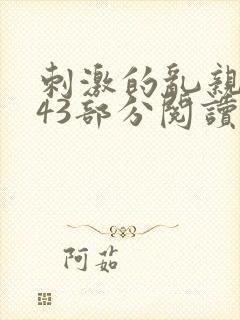 刺激的亂親
43部分閱讀
阿茹